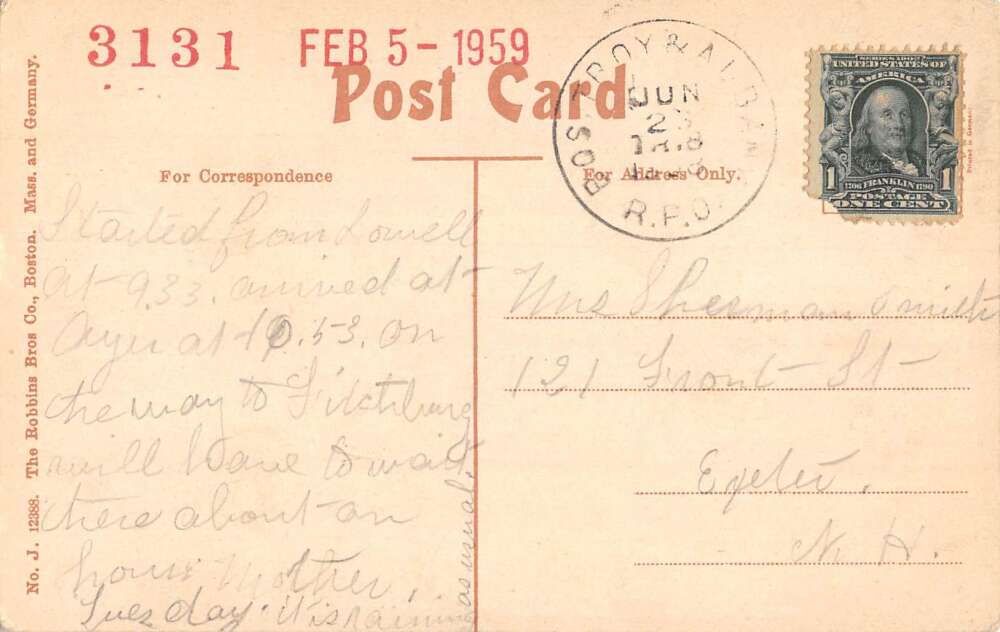 3131 FEB 5 - 1959
Post Card
For Correspondence
For Address Only.
BOS. TROY & ALBANY
JUN
23
R.P.O.
SERIES 1902
UNITED STATES OF
AMERICA
1 1
1706 FRANKLIN 1790
POSTAGE
ONE CENT
Printed in Germany
No. J. 12388. The Robbins Bros Co., Boston. Mass. and Germany.
Started from Lowell
at 9.33. arrived at
Ayer at 10.53. on
the way to Fitchburg
will have to wait
there about an
hour. Mother.
Tuesday. It is raining
as usual.
Mrs Sherman Smith
121 Front St
Exeter.
N. H.